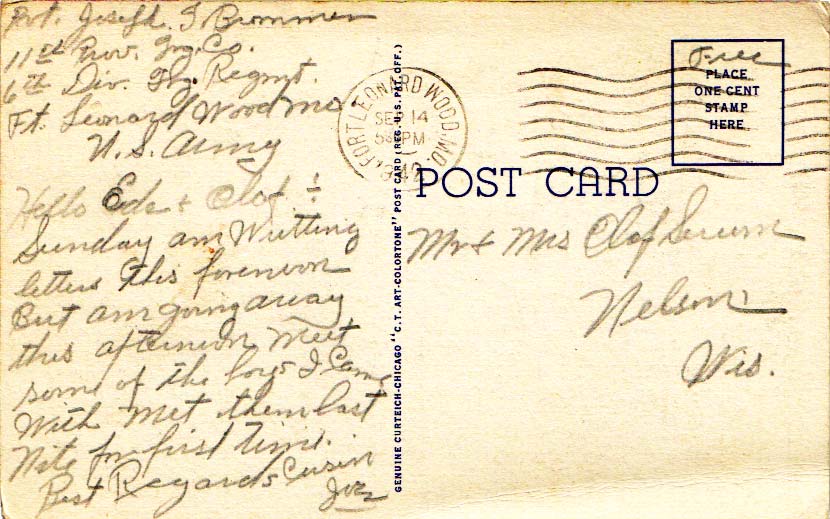 Pvt. Joseph. I Brommer
11th Prov. Trg. Co.
6th Div. Trg. Regmt.
Ft. Leonard Wood Mo.
U.S. Army
Hello Eda & Olaf :
Sunday am Writting
letters this forenoon
But am going away
this afternoon meet
some of the boys I Came
With Met them last
Nite for first time.
Best Regards Cusin
Joe
GENUINE CURTEICH-CHICAGO "C.T. ART-COLORTONE" POST CARD (REG. U.S. PAT. OFF.)
FORT LEONARD WOOD, MO.
SEP 14
PM
Free
PLACE
ONE CENT
STAMP
HERE
POST CARD
Mr & Mrs Olaf
Nelson
Wis.